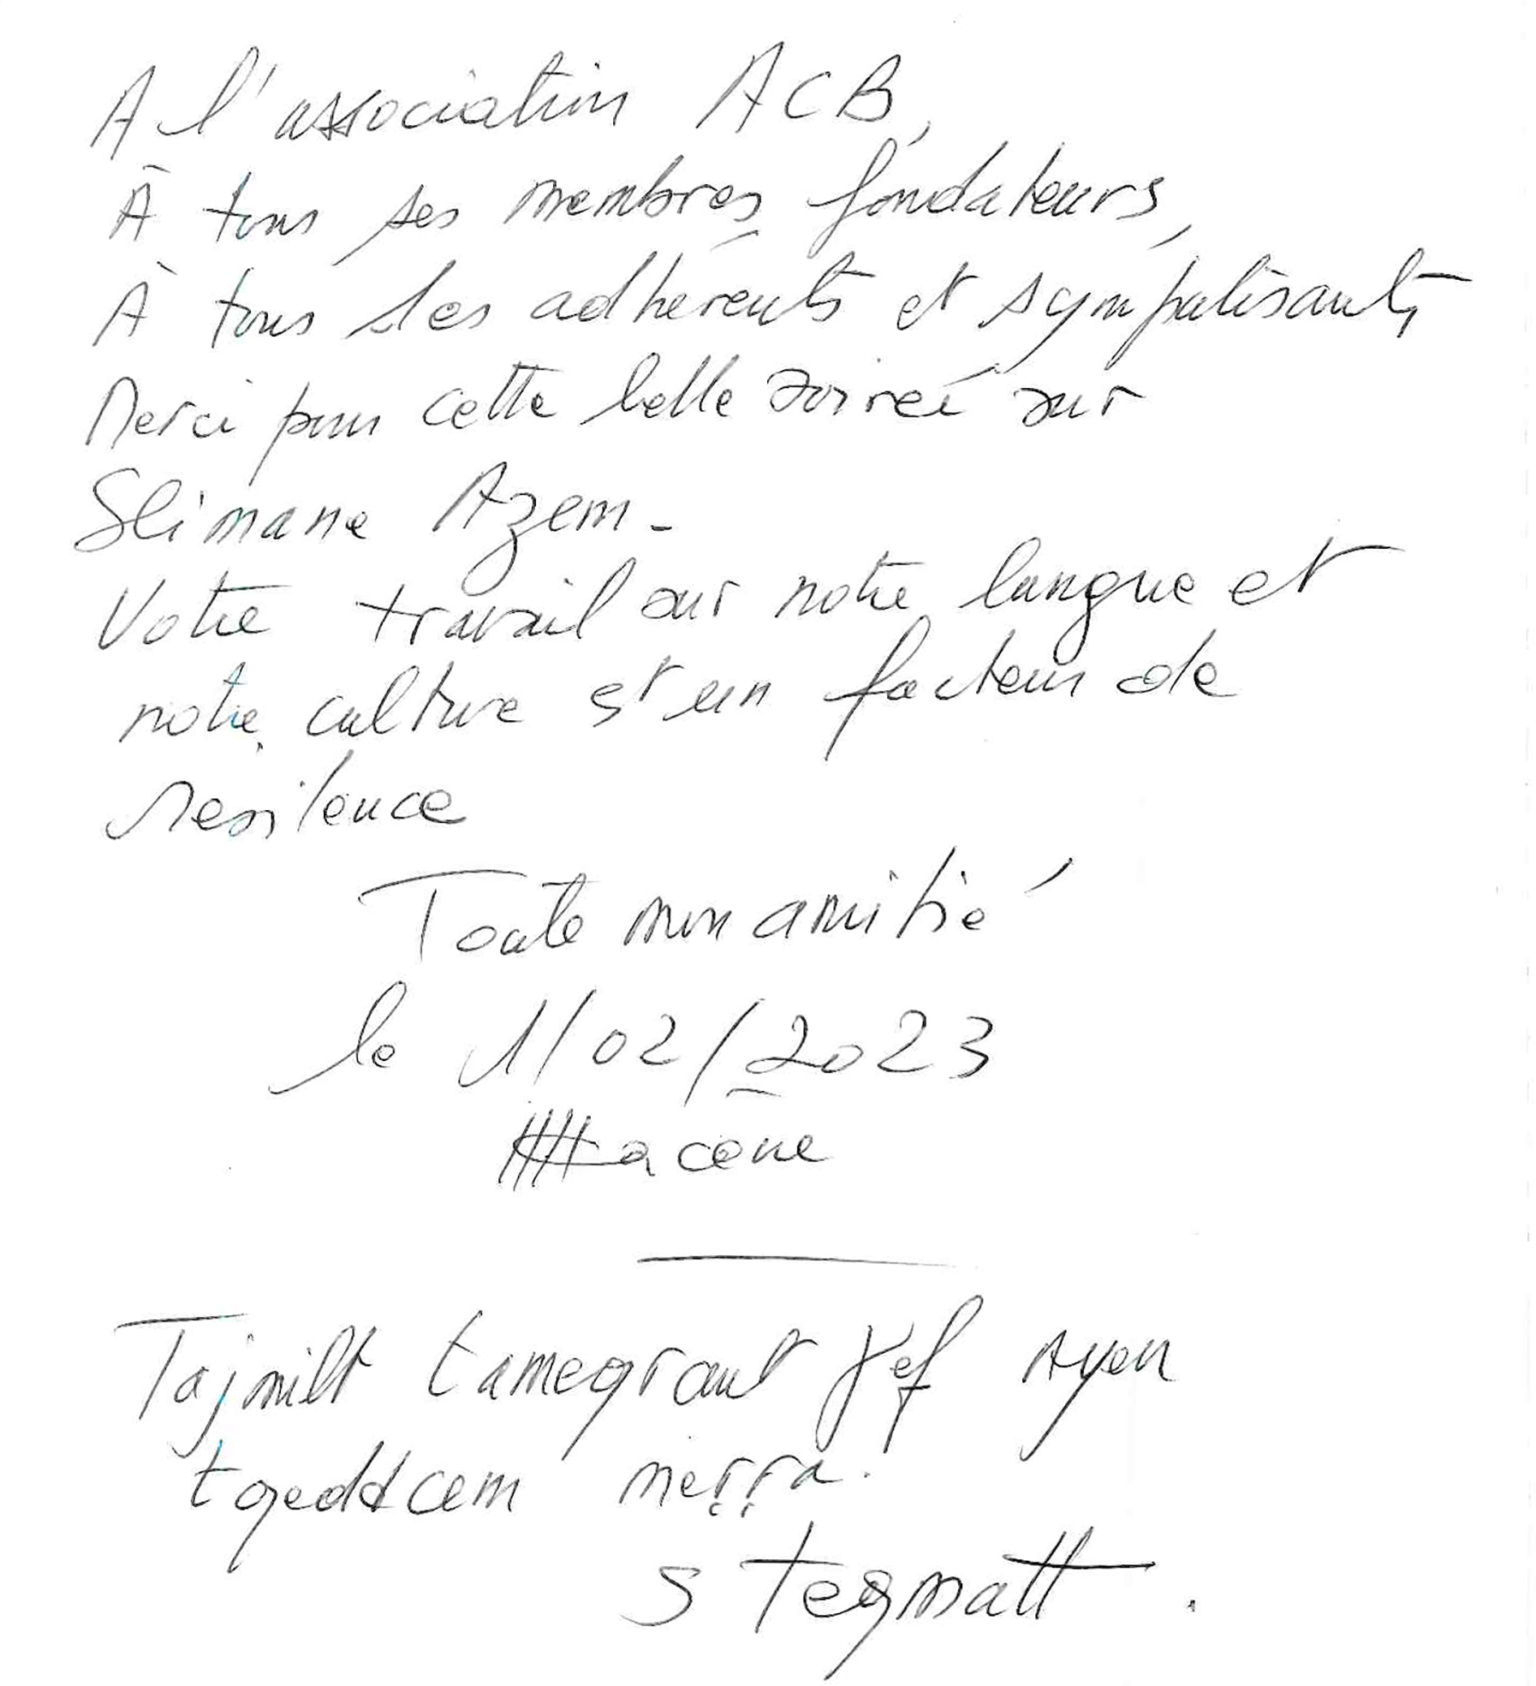 A l'association ACB,
À tous ses membres fondateurs,
À tous les adhérents et sympatisants,
Merci pour cette belle soireé sur
Slimane Azem -
Votre travail sur notre langue et
notre culture et un facteur de
resilence
Toute mon amitié
le 1/02/2023
Hacène
Tajmilt tameqrant ɣef ayen
tqeddcem meṛṛa.
S tegmatt.